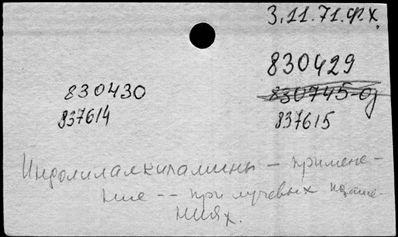 3.11.71.ф.х.
830429
830430
830745-од
837614
837615
Индолилалкиламины — примене-
ние -- при лучевых пораже-
ниях.